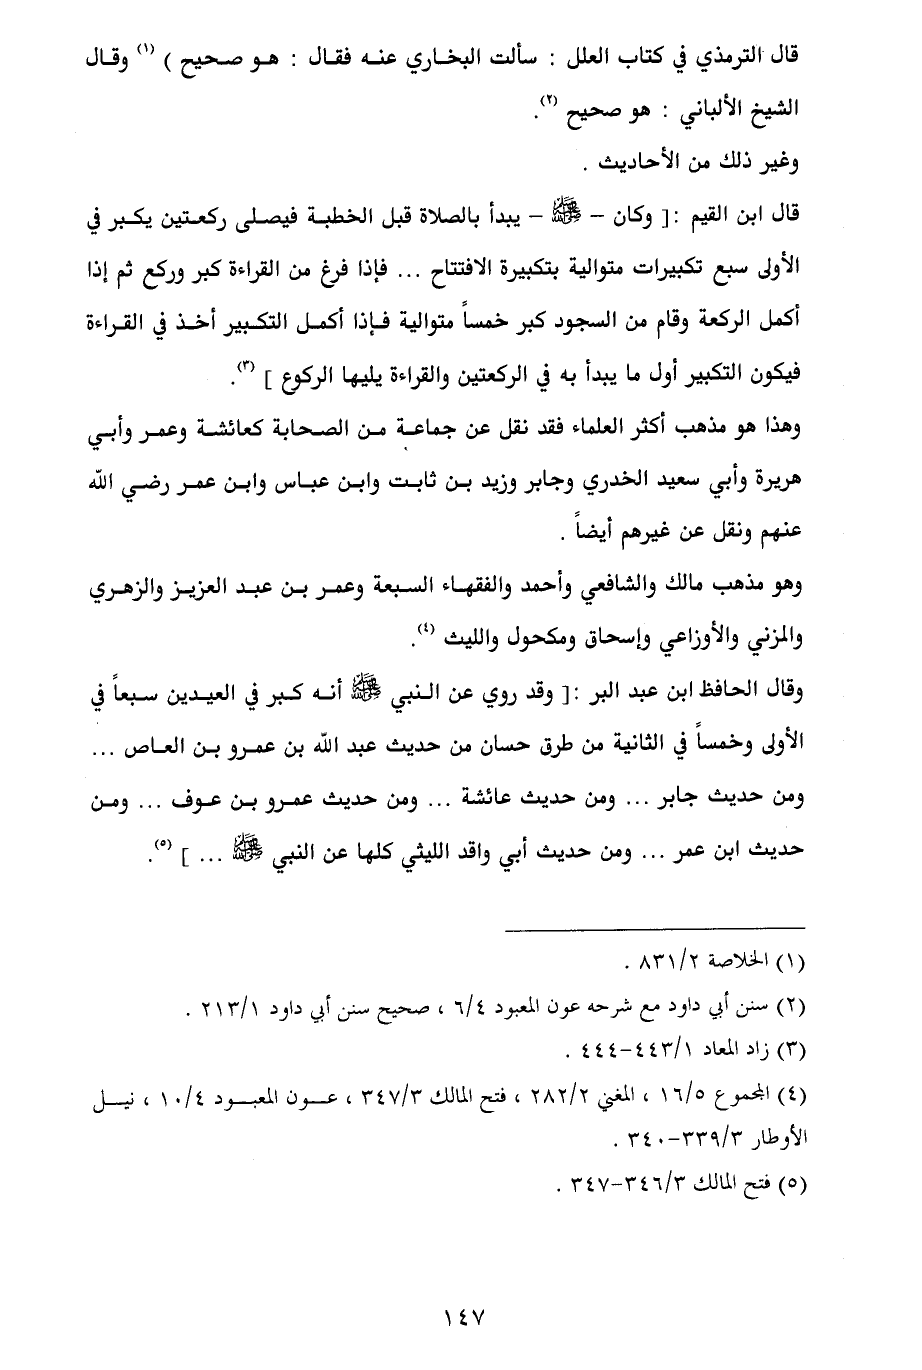 قال الترمذي في كتاب العلل : سألت البخاري عنه فقال : هو صحيح ) (١) وقال
الشيخ الألباني : هو صحيح (٢).
وغير ذلك من الأحاديث .
قال ابن القيم :[ وكان – ﷺ – يبدأ بالصلاة قبل الخطبة فيصلى ركعتين يكبر في
الأولى سبع تكبيرات متوالية بتكبيرة الافتتاح ... فإذا فرغ من القراءة كبر وركع ثم إذا
أكمل الركعة وقام من السجود كبر خمساً متوالية فإذا أكمل التكبير أخذ في القراءة
فيكون التكبير أول ما يبدأ به في الركعتين والقراءة يليها الركوع ] (٣).
وهذا هو مذهب أكثر العلماء فقد نقل عن جماعة من الصحابة كعائشة وعمر وأبي
هريرة وأبي سعيد الخدري وجابر وزيد بن ثابت وابن عباس وابن عمر رضي الله
عنهم ونقل عن غيرهم أيضاً .
وهو مذهب مالك والشافعي وأحمد والفقهاء السبعة وعمر بن عبد العزيز والزهري
والمزني والأوزاعي وإسحاق ومكحول والليث (٤).
وقال الحافظ ابن عبد البر :[ وقد روي عن النبي ﷺ أنه كبر في العيدين سبعاً في
الأولى وخمساً في الثانية من طرق حسان من حديث عبد الله بن عمرو بن العاص ...
ومن حديث جابر ... ومن حديث عائشة ... ومن حديث عمرو بن عوف ... ومن
حديث ابن عمر ... ومن حديث أبي واقد الليثي كلها عن النبي ﷺ ... ] (٥).
(١) الخلاصة ٨٣١/٢ .
(٢) سنن أبي داود مع شرحه عون المعبود ٦/٤ ، صحيح سنن أبي داود ٢١٣/١ .
(٣) زاد المعاد ٤٤٣/١–٤٤٤ .
(٤) المجموع ١٦/٥ ، المغني ٢٨٢/٢ ، فتح المالك ٣٤٧/٣ ، عون المعبود ١٠/٤ ، نيل
الأوطار ٣٣٩/٣–٣٤٠ .
(٥) فتح المالك ٣٤٦/٣–٣٤٧ .
١٤٧